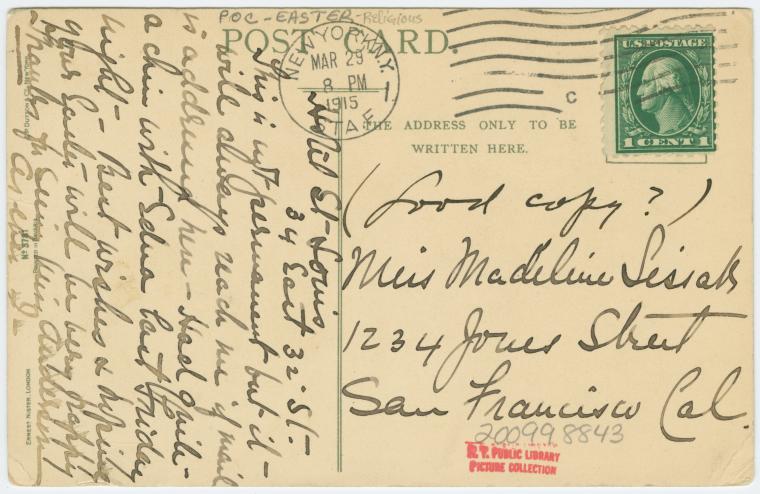 POC-EASTER-Religious
POST CARD.
NEW YORK, N.Y.
MAR 29
8 PM
1915
STA F.
C
U.S. POSTAGE
1 CENT 1
THE ADDRESS ONLY TO BE
WRITTEN HERE.
(Good copy?)
Miss Madeline Lissak
1234 Jones Street
San Francisco Cal.
2009998843
N.Y. PUBLIC LIBRARY
PICTURE COLLECTION
Hotel St-Louis
34 East 32" St.-
This is not permanent but it-
will always reach me if mail
is addressed here - Had quite-
a chin with Edna last Friday
night - Best wishes & hoping
your Easter will be very happy
Thanks for seeing Miss
As ever
Nº 3781
ERNEST NISTER, LONDON